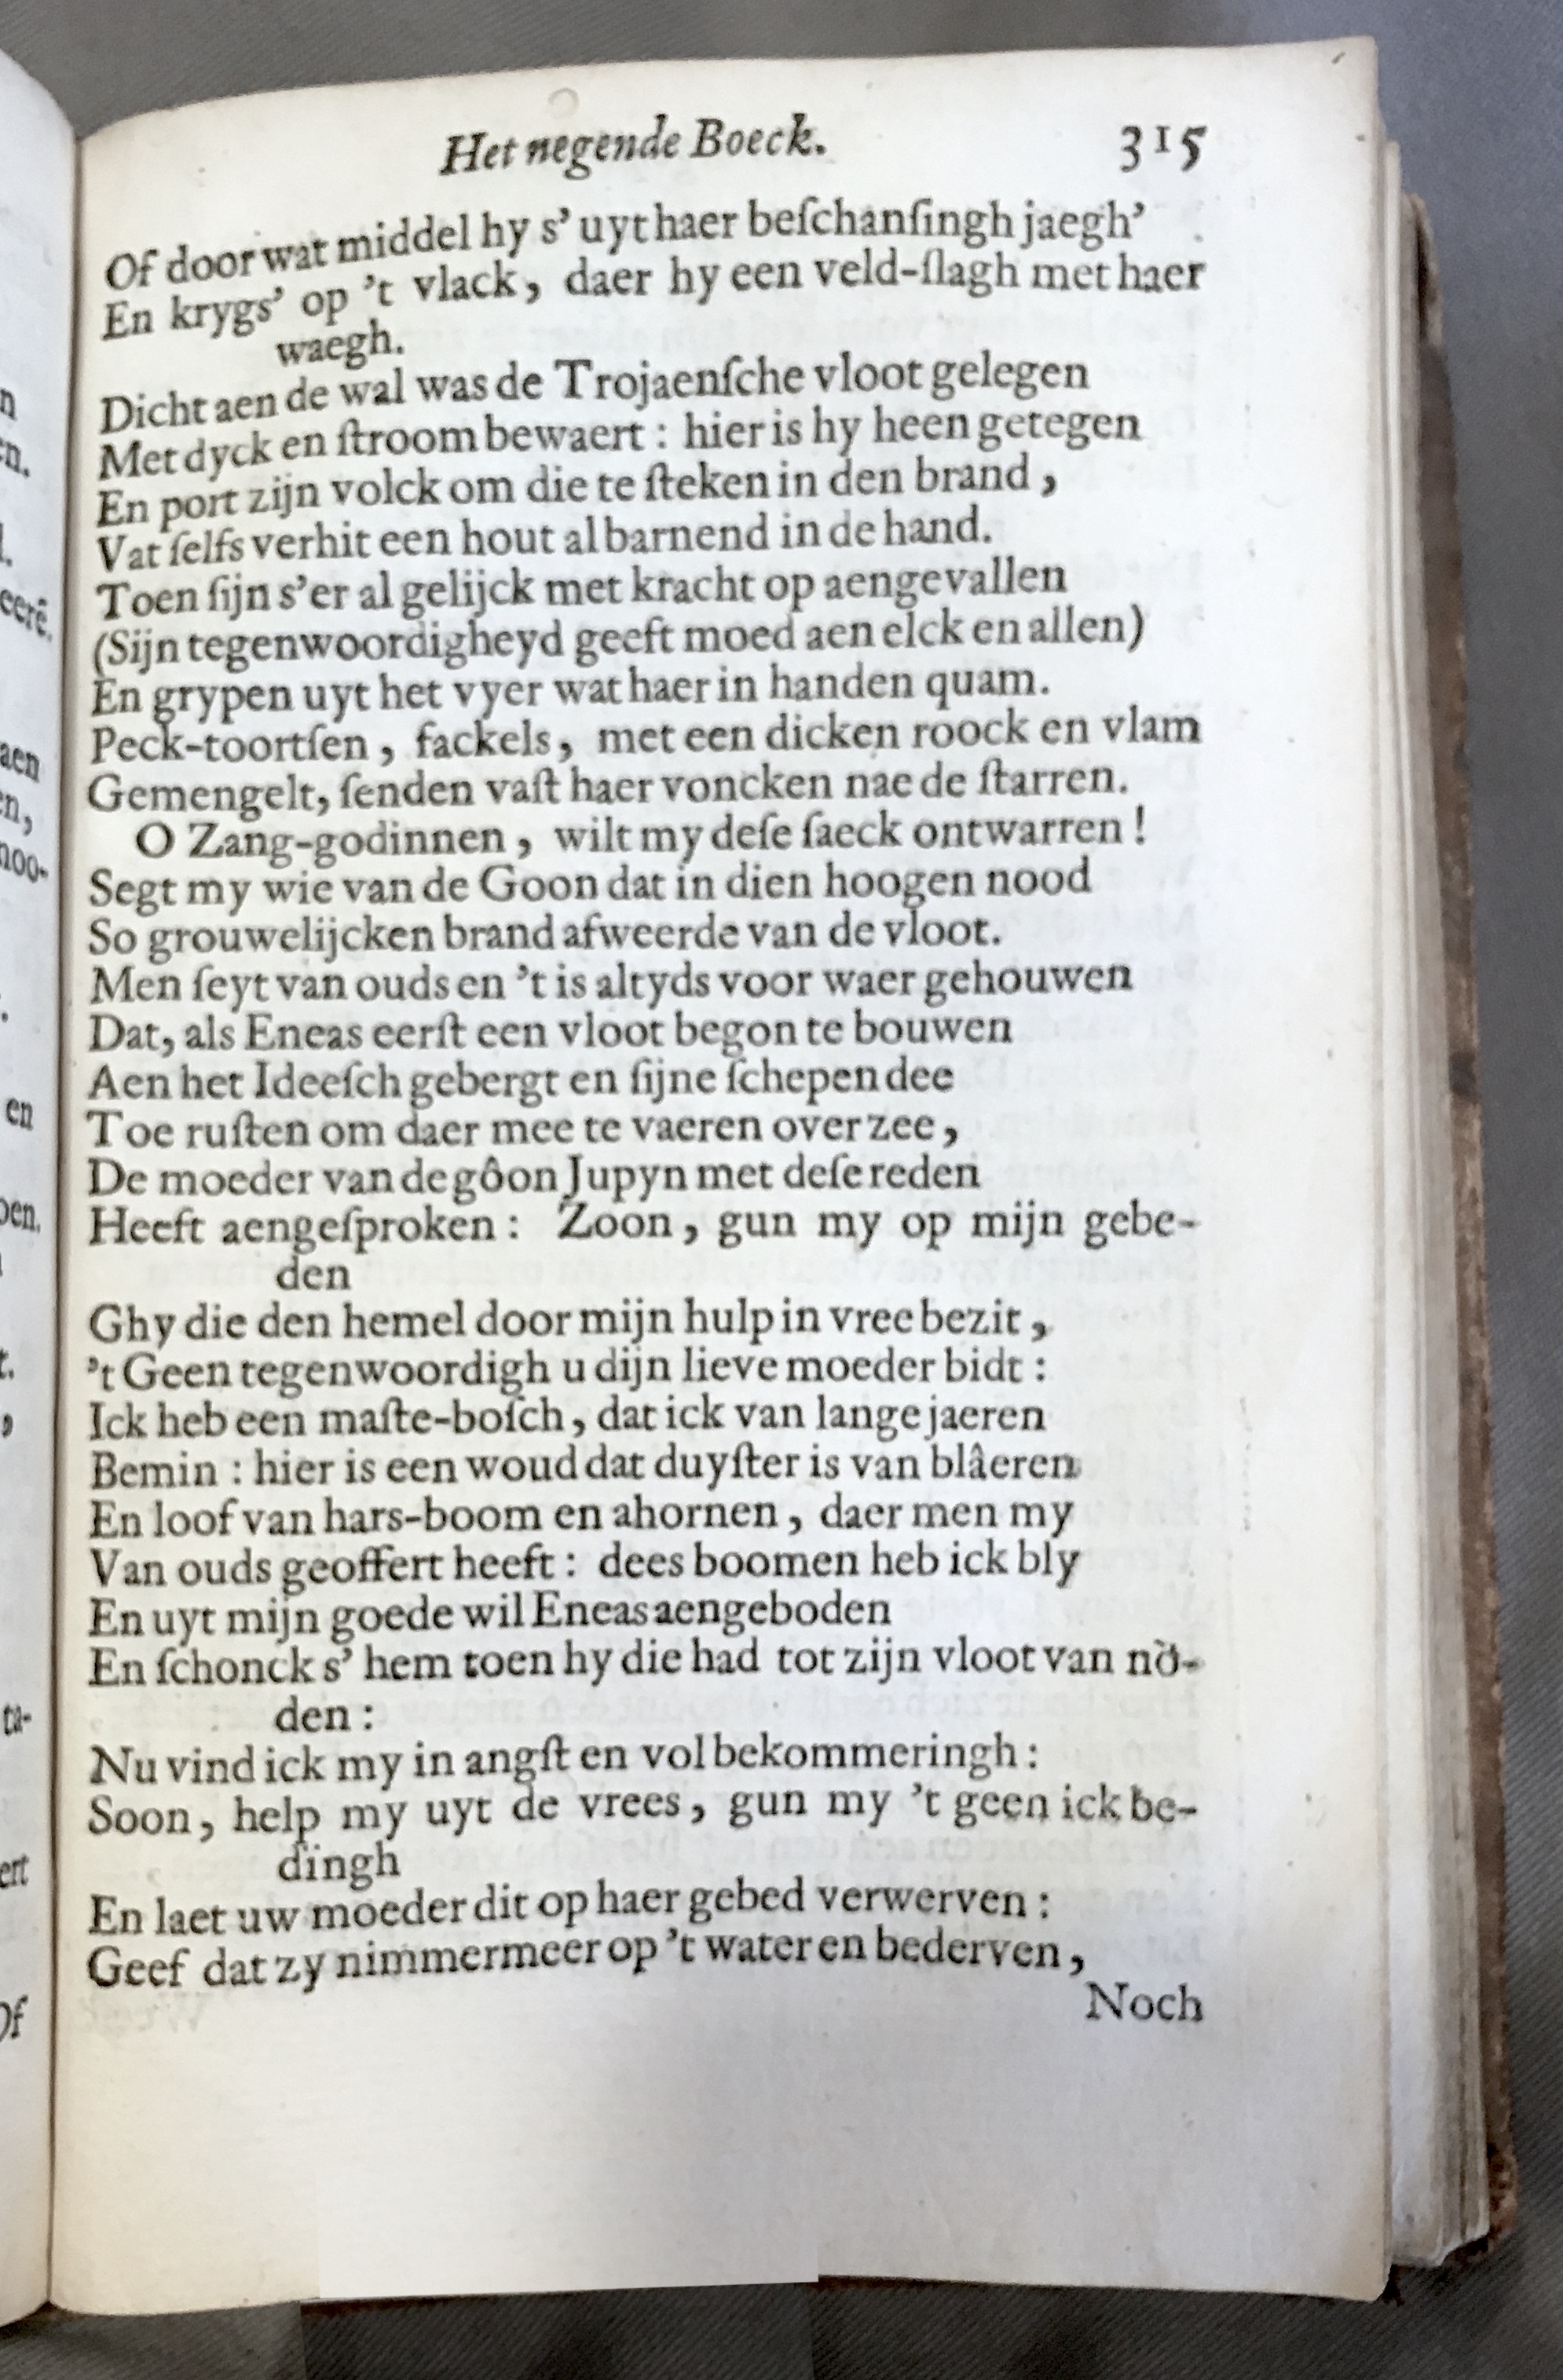 Het negende Boeck. 315
Of door wat middel hy s' uyt haer beſchanſingh jaegh'
En krygs' op 't vlack, daer hy een veld-ſlagh met haer
waegh.
Dicht aen de wal was de Trojaenſche vloot gelegen
Met dyck en ſtroom bewaert : hier is hy heen getegen
En port zijn volck om die te ſteken in den brand,
Vat ſelfs verhit een hout al barnend in de hand.
Toen ſijn s'er al gelijck met kracht op aengevallen
(Sijn tegenwoordigheyd geeft moed aen elck en allen)
En grypen uyt het vyer wat haer in handen quam.
Peck-toortſen, fackels, met een dicken roock en vlam
Gemengelt, ſenden vaſt haer voncken nae de ſtarren.
O Zang-godinnen, wilt my deſe ſaeck ontwarren!
Segt my wie van de Goon dat in dien hoogen nood
So grouwelijcken brand afweerde van de vloot.
Men ſeyt van ouds en 't is altyds voor waer gehouwen
Dat, als Eneas eerſt een vloot begon te bouwen
Aen het Ideeſch gebergt en ſijne ſchepen dee
Toe ruſten om daer mee te vaeren over zee,
De moeder van de gôon Jupyn met deſe reden
Heeft aengeſproken : Zoon, gun my op mijn gebe-
den
Ghy die den hemel door mijn hulp in vree bezit,
't Geen tegenwoordigh u dijn lieve moeder bidt :
Ick heb een maſte-boſch, dat ick van lange jaeren
Bemin : hier is een woud dat duyſter is van blâeren
En loof van hars-boom en ahornen, daer men my
Van ouds geoffert heeft : dees boomen heb ick bly
En uyt mijn goede wil Eneas aengeboden
En ſchonck s' hem toen hy die had tot zijn vloot van nò-
den :
Nu vind ick my in angſt en vol bekommeringh :
Soon, help my uyt de vrees, gun my 't geen ick be-
dingh
En laet uw moeder dit op haer gebed verwerven :
Geef dat zy nimmermeer op 't water en bederven,
Noch